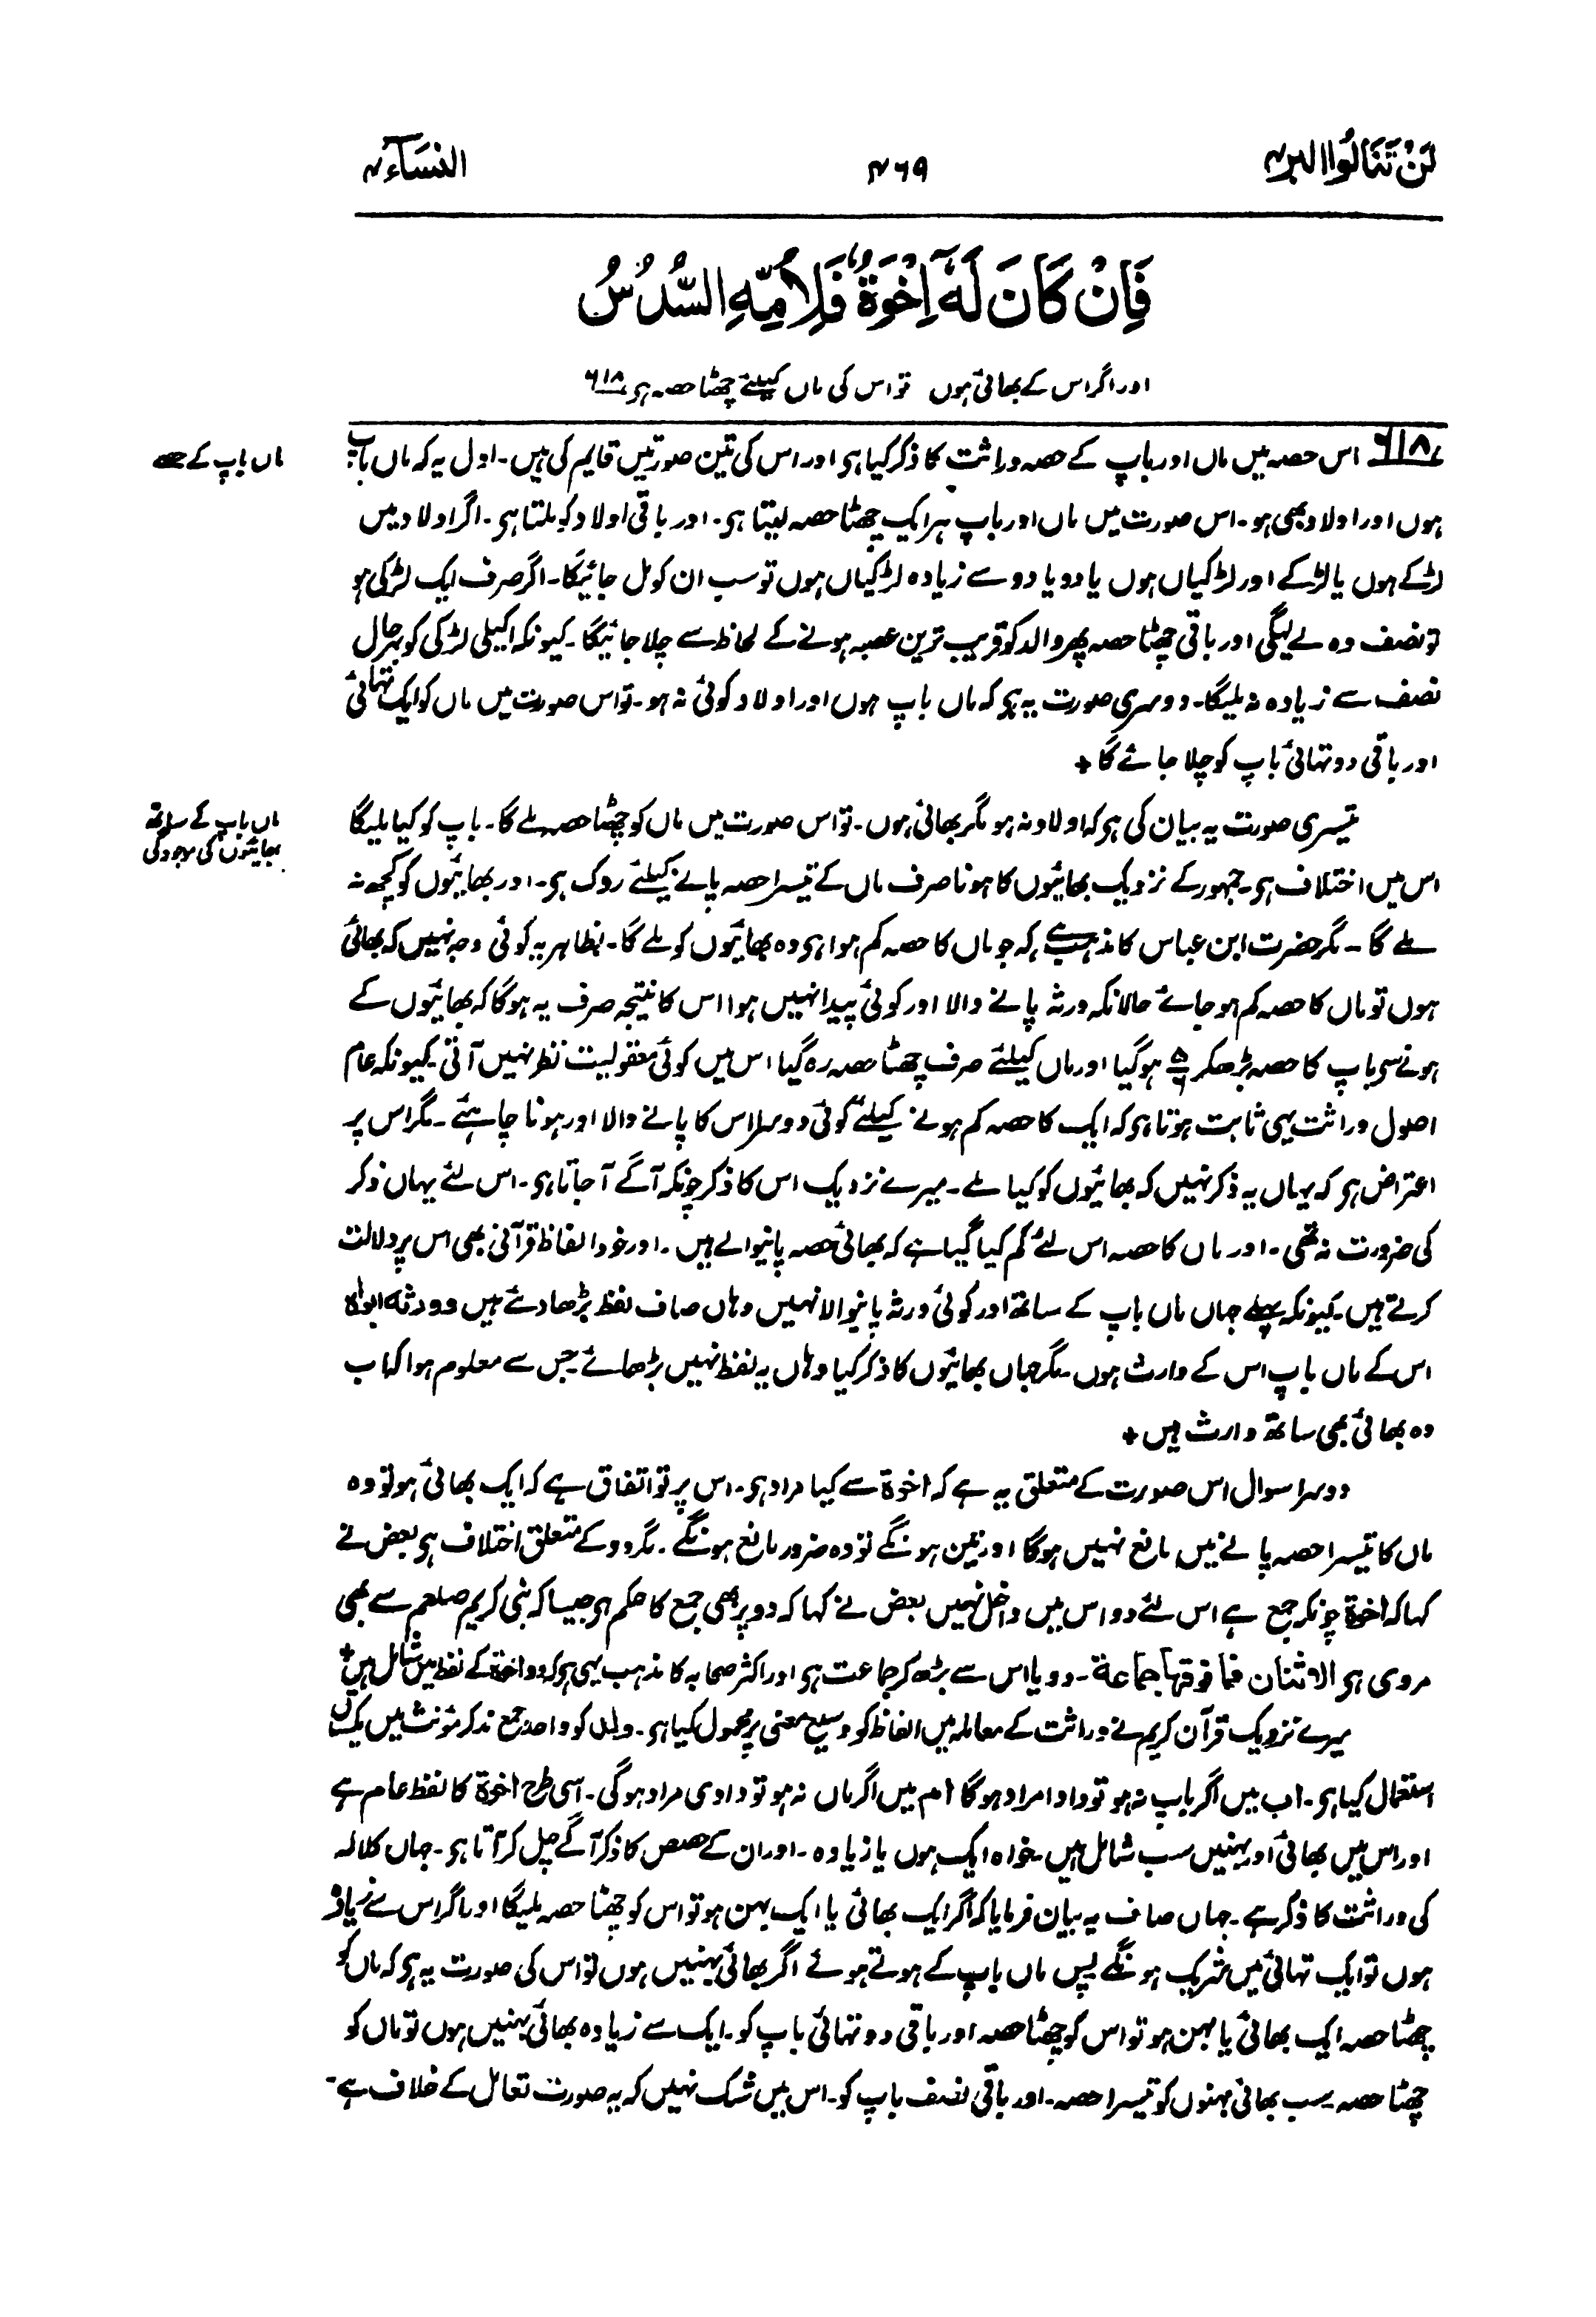 لَنْ تَنَالُوا البر ۴
۴۶۹
النِّسَآء ۴
فَاِنْ كَانَ لَهٗٓ اِخْوَةٌ فَلِاُمِّهِ السُّدُسُ
اور اگر اس کے بھائی ہوں تو اس کی ماں کیلئے چھٹا حصہ ہی ۶۱۸
ماں باپ کے حصے
۶۱۸ اس حصہ میں ماں اور باپ کے حصہ وراثت کا ذکر کیا ہی اور اس کی تین صورتیں قایم کی ہیں۔ اول یہ کہ ماں باپ
ہوں اور اولاد بھی ہو۔ اس صورت میں ماں اور باپ ہر ایک چھٹا حصہ لیتا ہی۔ اور باقی اولاد کو ملتا ہی۔ اگر اولاد میں
لڑکے ہوں یا لڑکے اور لڑکیاں ہوں یا دو یا دو سے زیادہ لڑکیاں ہوں تو سب ان کو مل جائیگا۔ اگر صرف ایک لڑکی ہو
تو نصف وہ لے لیگی اور باقی چھٹا حصہ پھر والد کو قریب ترین عصبہ ہونے کے لحاظ سے چلا جائیگا۔ کیونکہ اکیلی لڑکی کو بہرحال
نصف سے زیادہ نہ ملیگا۔ دوسری صورت یہ ہی کہ ماں باپ ہوں اور اولاد کوئی نہ ہو۔ تو اس صورت میں ماں کو ایک تہائی
اور باقی دو تہائی باپ کو چلا جائے گا +
ماں باپ کے ساتھ
بھائیوں کی موجودگی
تیسری صورت یہ بیان کی ہی کہ اولاد نہ ہو مگر بھائی ہوں۔ تو اس صورت میں ماں کو چھٹا حصہ ملے گا۔ باپ کو کیا ملیگا
اس میں اختلاف ہی۔ جمہور کے نزدیک بھائیوں کا ہونا صرف ماں کے تیسرا حصہ پانے کیلئے روک ہی۔ اور بھائیوں کو کچھ نہ
ملے گا۔ مگر حضرت ابن عباس کا مذہب ہے کہ جو ماں کا حصہ کم ہوا ہی وہ بھائیوں کو ملے گا۔ بظاہر یہ کوئی وجہ نہیں کہ بھائی
ہوں تو ماں کا حصہ کم ہو جائے حالانکہ ورثہ پانے والا اور کوئی پیدا نہیں ہوا اس کا نتیجہ صرف یہ ہوگا کہ بھائیوں کے
ہونے سی باپ کا حصہ بڑھکر ۵/۶ ہوگیا اور ماں کیلئے صرف چھٹا حصہ رہ گیا اس میں کوئی معقولیت نظر نہیں آتی کیونکہ عام
اصول وراثت یہی ثابت ہوتا ہی کہ ایک کا حصہ کم ہونے کیلئے کوئی دوسرا اس کا پانے والا اور ہونا چاہئے۔ مگر اس پر
اعتراض ہی کہ یہاں یہ ذکر نہیں کہ بھائیوں کو کیا ملے۔ میرے نزدیک اس کا ذکر چونکہ آگے آ جاتا ہی۔ اس لئے یہاں ذکر
کی ضرورت نہ تھی۔ اور ماں کا حصہ اس لئے کم کیا گیا ہے کہ بھائی حصہ پانیوالے ہیں۔ اور خود الفاظ قرآنی بھی اس پر دلالت
کرتے ہیں۔ کیونکہ پہلے جہاں ماں باپ کے ساتھ اور کوئی ورثہ پانیوالا نہیں وہاں صاف لفظ بڑھا دئے ہیں وورثه ابواه
اس کے ماں باپ اس کے وارث ہوں۔ مگر جہاں بھائیوں کا ذکر کیا وہاں یہ لفظ نہیں بڑھائے جس سے معلوم ہوا کہ اب
وہ بھائی بھی ساتھ وارث ہیں +
دوسرا سوال اس صورت کے متعلق یہ ہے کہ اخوة سے کیا مراد ہی۔ اس پر تو اتفاق ہے کہ ایک بھائی ہو تو وہ
ماں کا تیسرا حصہ پانے میں مانع نہیں ہوگا اور تین ہونگے تو وہ ضرور مانع ہونگے۔ مگر دو کے متعلق اختلاف ہی بعض نے
کہا کہ اخوة چونکہ جمع ہے اس لئے دو اس میں داخل نہیں بعض نے کہا کہ دو پر بھی جمع کا حکم ہی جیسا کہ نبی کریم صلعم سے بھی
مروی ہی الاثنان فما فوقها جماعة۔ دو یا اس سے بڑھ کر جماعت ہی اور اکثر صحابہ کا مذہب یہی ہی کہ دو اخوة کے لفظ میں شامل ہیں +
میرے نزدیک قرآن کریم نے وراثت کے معاملہ میں الفاظ کو وسیع معنی پر محمول کیا ہی۔ ولد کو واحد جمع مذکر مؤنث میں یکساں
استعمال کیا ہی۔ اب میں اگر باپ نہ ہو تو دادا مراد ہوگا ام میں اگر ماں نہ ہو تو دادی مراد ہوگی۔ اسی طرح اخوة کا لفظ عام ہے
اور اس میں بھائی اور بہنیں سب شامل ہیں۔ خواہ ایک ہوں یا زیادہ۔ اور ان کے حصص کا ذکر آگے چل کر آتا ہی۔ جہاں کلالہ
کی وراثت کا ذکر ہے۔ جہاں صاف یہ بیان فرمایا کہ اگر ایک بھائی یا ایک بہن ہو تو اس کو چھٹا حصہ ملیگا اور اگر اس سے زیادہ
ہوں تو ایک تہائی میں شریک ہونگے پس ماں باپ کے ہوتے ہوئے اگر بھائی بہنیں ہوں تو اس کی صورت یہ ہی کہ ماں کو
چھٹا حصہ ایک بھائی یا بہن ہو تو اس کو چھٹا حصہ اور باقی دو تہائی باپ کو۔ ایک سے زیادہ بھائی بہنیں ہوں تو ماں کو
چھٹا حصہ سب بھائی بہنوں کو تیسرا حصہ۔ اور باقی نصف باپ کو۔ اس میں شک نہیں کہ یہ صورت تعامل کے خلاف ہے۔